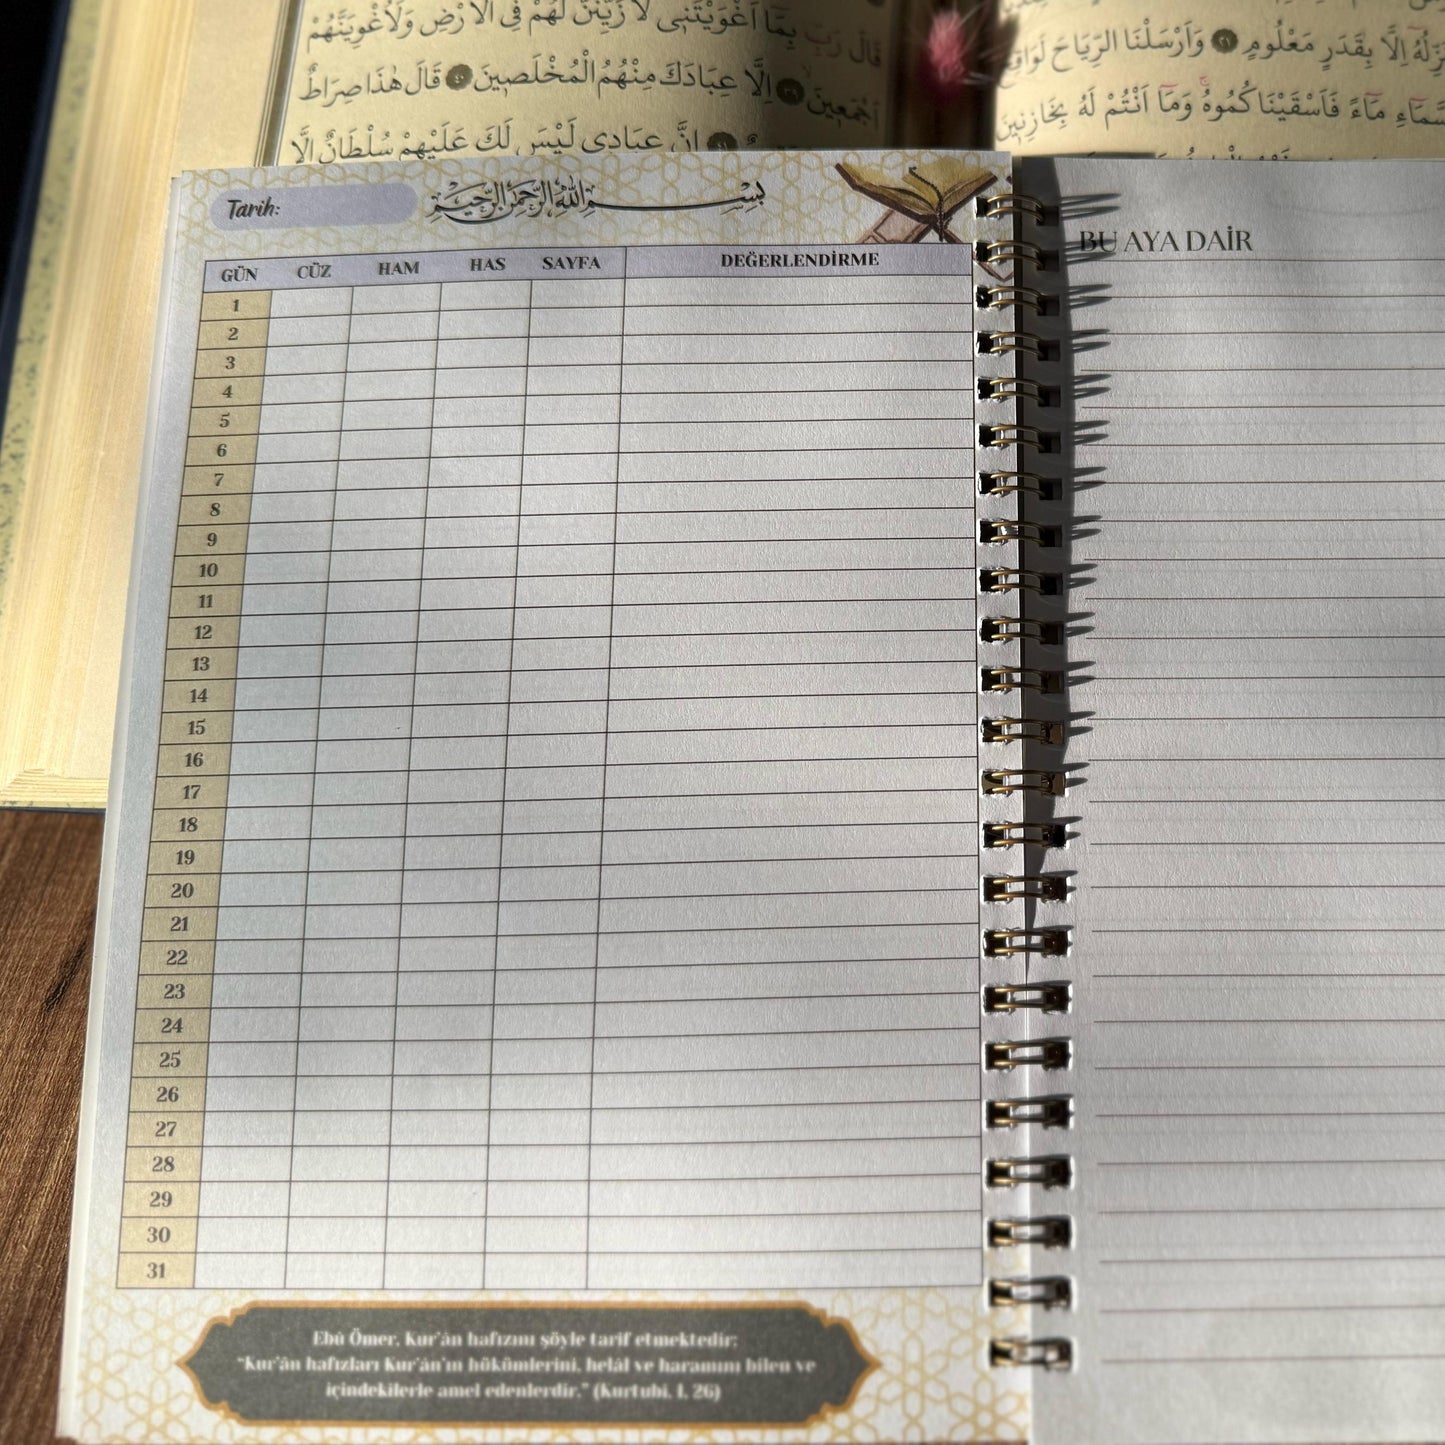 قَالَ رَبِّ بِمَٓا اَغْوَيْتَنٖى لَاُزَيِّنَنَّ لَهُمْ فِى الْاَرْضِ وَلَاُغْوِيَنَّهُمْ
اَجْمَعٖينَ ﴿٣٩﴾ اِلَّا عِبَادَكَ مِنْهُمُ الْمُخْلَصٖينَ ﴿٤٠﴾ قَالَ هٰذَا صِرَاطٌ
﴿٤١﴾ اِنَّ عِبَادٖى لَيْسَ لَكَ عَلَيْهِمْ سُلْطَانٌ اِلَّا
اِلَّا بِقَدَرٍ مَعْلُومٍ ﴿٢١﴾ وَاَرْسَلْنَا الرِّيَاحَ لَوَاقِحَ
مَٓاءً فَاَسْقَيْنَاكُمُوهُۚ وَمَٓا اَنْتُمْ لَهُ بِخَازِنٖينَ
Tarih:
بِسْمِ اللهِ الرَّحْمٰنِ الرَّحِيمِ
GÜN CÜZ HAM HAS SAYFA DEĞERLENDİRME
1
2
3
4
5
6
7
8
9
10
11
12
13
14
15
16
17
18
19
20
21
22
23
24
25
26
27
28
29
30
31
Ebû Ömer, Kur'ân hafızını şöyle tarif etmektedir;
"Kur'ân hafızları Kur'ân'ın hükümlerini, helâl ve haramını bilen ve
içindekilerle amel edenlerdir." (Kurtubi, I, 26)
BU AYA DAİR